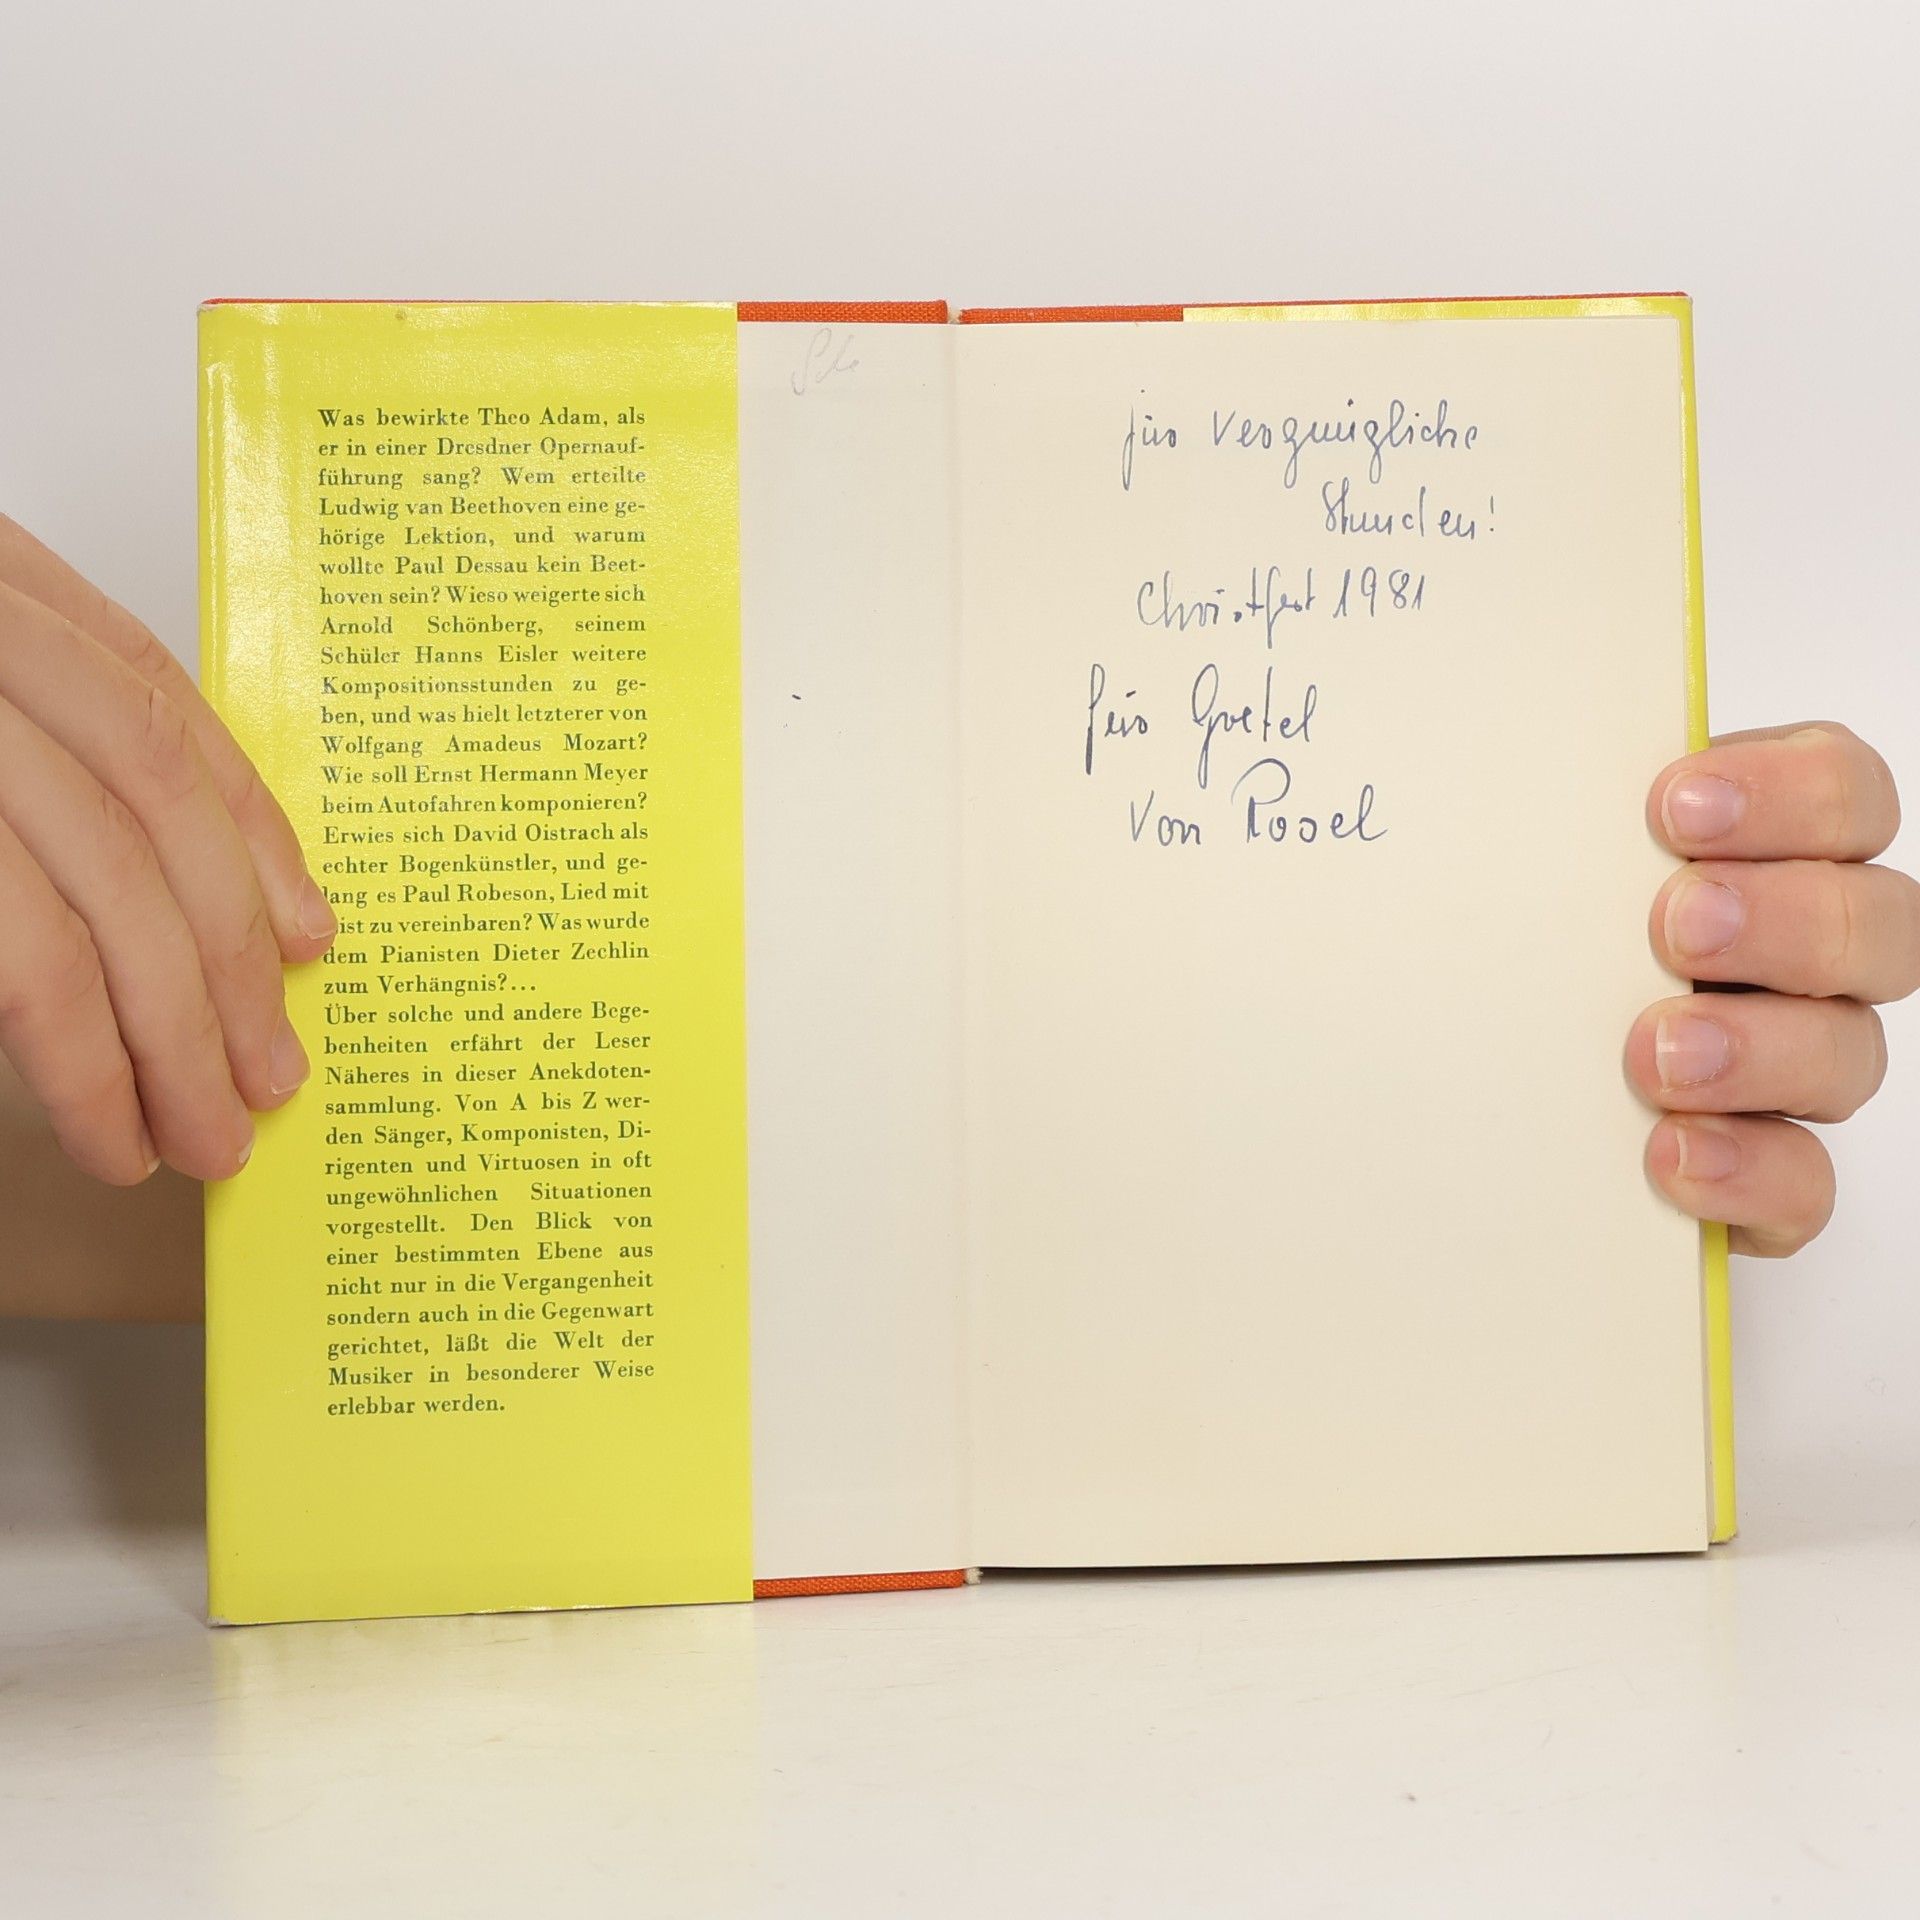 Was bewirkte Theo Adam, als
er in einer Dresdner Opernauf-
führung sang? Wem erteilte
Ludwig van Beethoven eine ge-
hörige Lektion, und warum
wollte Paul Dessau kein Beet-
hoven sein? Wieso weigerte sich
Arnold Schönberg, seinem
Schüler Hanns Eisler weitere
Kompositionsstunden zu ge-
ben, und was hielt letzterer von
Wolfgang Amadeus Mozart?
Wie soll Ernst Hermann Meyer
beim Autofahren komponieren?
Erwies sich David Oistrach als
echter Bogenkünstler, und ge-
lang es Paul Robeson, Lied mit
ist zu vereinbaren? Was wurde
dem Pianisten Dieter Zechlin
zum Verhängnis?...
Über solche und andere Bege-
benheiten erfährt der Leser
Näheres in dieser Anekdoten-
sammlung. Von A bis Z wer-
den Sänger, Komponisten, Di-
rigenten und Virtuosen in oft
ungewöhnlichen Situationen
vorgestellt. Den Blick von
einer bestimmten Ebene aus
nicht nur in die Vergangenheit
sondern auch in die Gegenwart
gerichtet, läßt die Welt der
Musiker in besonderer Weise
erlebbar werden.
für vergnügliche
Stunden!
Christfest 1981
für Gretel
von Rosel